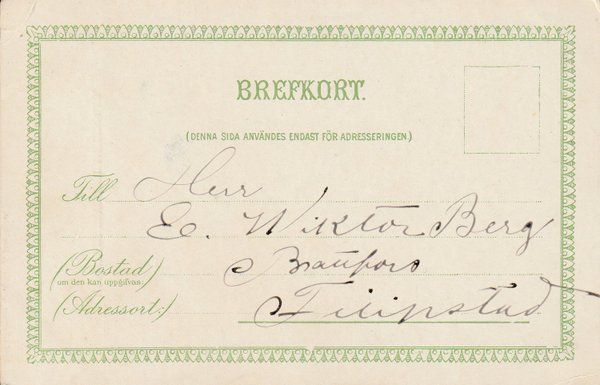 BREFKORT.
(DENNA SIDA ANVÄNDES ENDAST FÖR ADRESSERINGEN.)
Till Herr
E. Wiktor Berg
(Bostad) Brattfors
om den kan uppgifvas:
(Adressort:) Filipstad